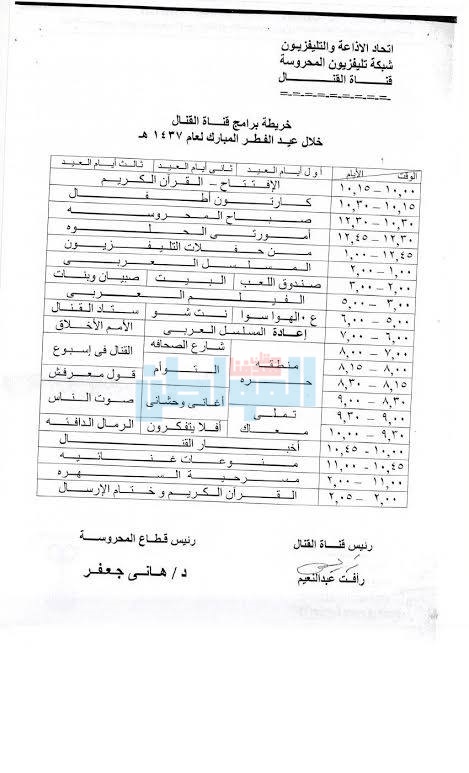 اتحاد الاذاعة والتليفزيون
شبكة تليفزيون المحروسة
قناة القنال
خريطة برامج قناة القنال
خلال عيد الفطر المبارك لعام ١٤٣٧ هـ
الوقت الأيام أول أيام العيد ثانى أيام العيد ثالث أيام العيد
١٠,٠٠ – ١٠,١٥ الإفتتاح – القرآن الكريم
١٠,١٥ – ١٠,٣٠ كارتون أطفال
١٠,٣٠ – ١٢,٣٠ صباح المحروسه
١٢,٣٠ – ١٢,٤٥ أمورتى الحلوه
١٢,٤٥ – ١,٠٠ من حفلات التليفزيون
١,٠٠ – ٢,٠٠ المسلسل العربى
٢,٠٠ – ٣,٠٠ صندوق اللعب البيت صبيان وبنات
٣,٠٠ – ٥,٠٠ الفيلم العربى
٥,٠٠ – ٦,٠٠ ع الهوا سوا نت شو ستاد القنال
٦,٠٠ – ٧,٠٠ إعادة المسلسل العربى الأمم الأخلاق
٧,٠٠ – ٨,٠٠ منطقه حره شارع الصحافه
٨,٠٠ – ٨,١٥ التوأم القنال فى إسبوع
٨,١٥ – ٨,٣٠ قول معرفش
٨,٣٠ – ٩,٠٠ تملى معاك أغانى وحشانى صوت الناس
٩,٠٠ – ٩,٣٠
٩,٣٠ – ١٠,٠٠ أفلا يتفكرون الرمال الدافئه
١٠,٠٠ – ١٠,٤٥ أخبار القنال
١٠,٤٥ – ١١,٠٠ منوعات غنائيه
١١,٠٠ – ٢,٠٠ مسرحية السهره
٢,٠٠ – ٢,٠٥ القرآن الكريم و ختام الإرسال
رئيس قناة القنال
رأفت عبدالنعيم
رئيس قطاع المحروسة
د/ هانى جعفر
المواطن